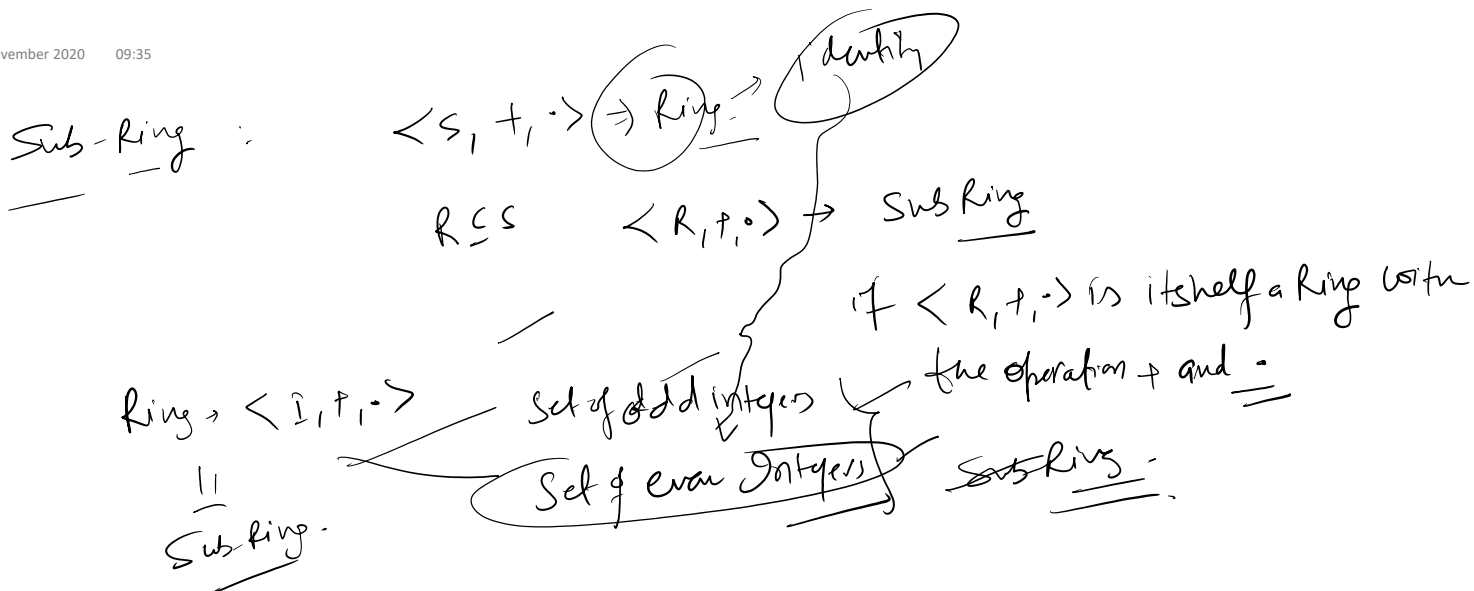 vember 2020 09:35
Identity
Sub-Ring : <S, +, ·> ⇒ Ring →
R ⊆ S <R, +, ·> → Sub Ring
if <R, +, ·> is itshelf a Ring with
the operation + and ·
Ring → <I, +, ·> Set of odd integers
Set of even Integers Sub Ring.
Sub-Ring.